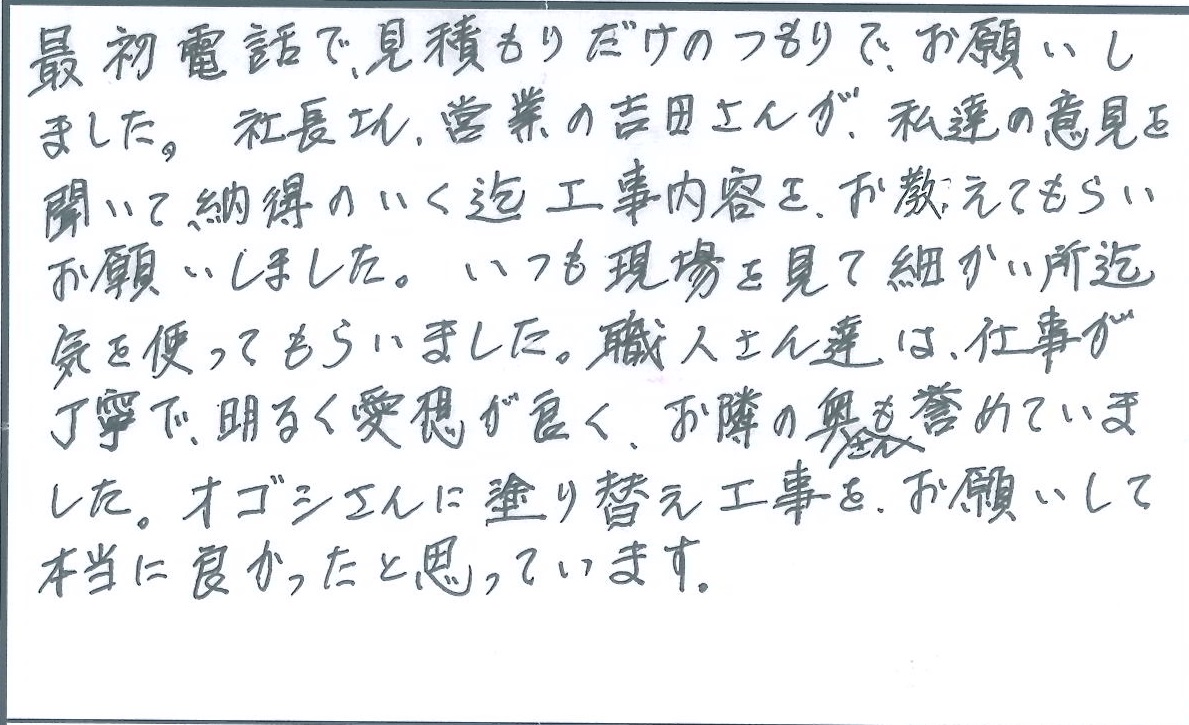 最初電話で、見積もりだけのつもりで、お願いし
ました。社長さん、営業の吉田さんが、私達の意見を
聞いて、納得のいく迄工事内容を、お教えてもらい
お願いしました。いつも現場を見て細かい所迄
気を使ってもらいました。職人さん達は、仕事が
丁寧で、明るく愛想が良く、お隣の奥さんも誉めていま
した。オゴシさんに塗り替え工事を、お願いして
本当に良かったと思っています。